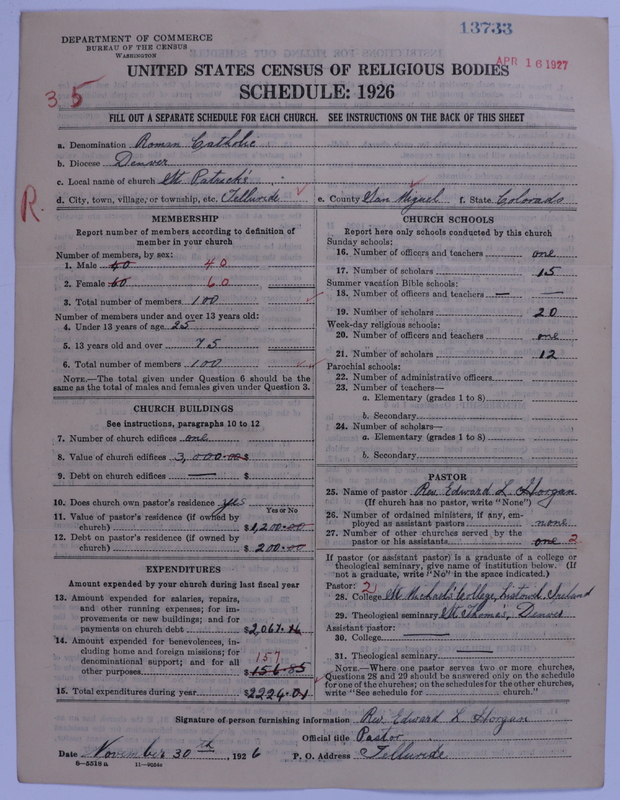 13733
DEPARTMENT OF COMMERCE
BUREAU OF THE CENSUS
WASHINGTON
APR 16 1927
UNITED STATES CENSUS OF RELIGIOUS BODIES
SCHEDULE: 1926
35
FILL OUT A SEPARATE SCHEDULE FOR EACH CHURCH. SEE INSTRUCTIONS ON THE BACK OF THIS SHEET
a. Denomination Roman Catholic
b. Diocese Denver
c. Local name of church St Patrick's
R.
d. City, town, village, or township, etc. Telluride e. County San Miguel f. State Colorado
MEMBERSHIP
Report number of members according to definition of
member in your church
Number of members, by sex:
1. Male 40 40
2. Female 60 60
3. Total number of members 100
Number of members under and over 13 years old:
4. Under 13 years of age 25
5. 13 years old and over 75
6. Total number of members 100
NOTE.—The total given under Question 6 should be the
same as the total of males and females given under Question 3.
CHURCH BUILDINGS
See instructions, paragraphs 10 to 12
7. Number of church edifices one
8. Value of church edifices 3,000.00
9. Debt on church edifices — $
10. Does church own pastor's residence yes
Yes or No
11. Value of pastor's residence (if owned by
church) $1,200.00
12. Debt on pastor's residence (if owned by
church) $200.00
EXPENDITURES
Amount expended by your church during last fiscal year
13. Amount expended for salaries, repairs,
and other running expenses; for im-
provements or new buildings; and for
payments on church debt $2,067.16
14. Amount expended for benevolences, in-
cluding home and foreign missions; for
denominational support; and for all
157
other purposes $156.85
15. Total expenditures during year $2224.01
CHURCH SCHOOLS
Report here only schools conducted by this church
Sunday schools:
16. Number of officers and teachers one
17. Number of scholars 15
Summer vacation Bible schools:
18. Number of officers and teachers — —
19. Number of scholars 20
Week-day religious schools:
20. Number of officers and teachers one
21. Number of scholars 12
Parochial schools:
22. Number of administrative officers
23. Number of teachers—
a. Elementary (grades 1 to 8)
b. Secondary
24. Number of scholars—
a. Elementary (grades 1 to 8)
b. Secondary
PASTOR
25. Name of pastor Rev Edward L Horgan
(If church has no pastor, write "None")
26. Number of ordained ministers, if any, em-
ployed as assistant pastors none
27. Number of other churches served by the
pastor or his assistants one 2
If pastor (or assistant pastor) is a graduate of a college or
theological seminary, give name of institution below. (If
not a graduate, write "No" in the space indicated.)
Pastor: 2
28. College St Michael's College, Listowel, Ireland
29. Theological seminary St Thomas', Denver
Assistant pastor:
30. College —
31. Theological seminary —
NOTE.—Where one pastor serves two or more churches,
Questions 28 and 29 should be answered only on the schedule
for one of the churches; on the schedules for the other churches,
write "See schedule for church."
Signature of person furnishing information Rev. Edward L Horgan
Official title Pastor
Date November 30th, 1926 P. O. Address Telluride
8—5518 a 11—9